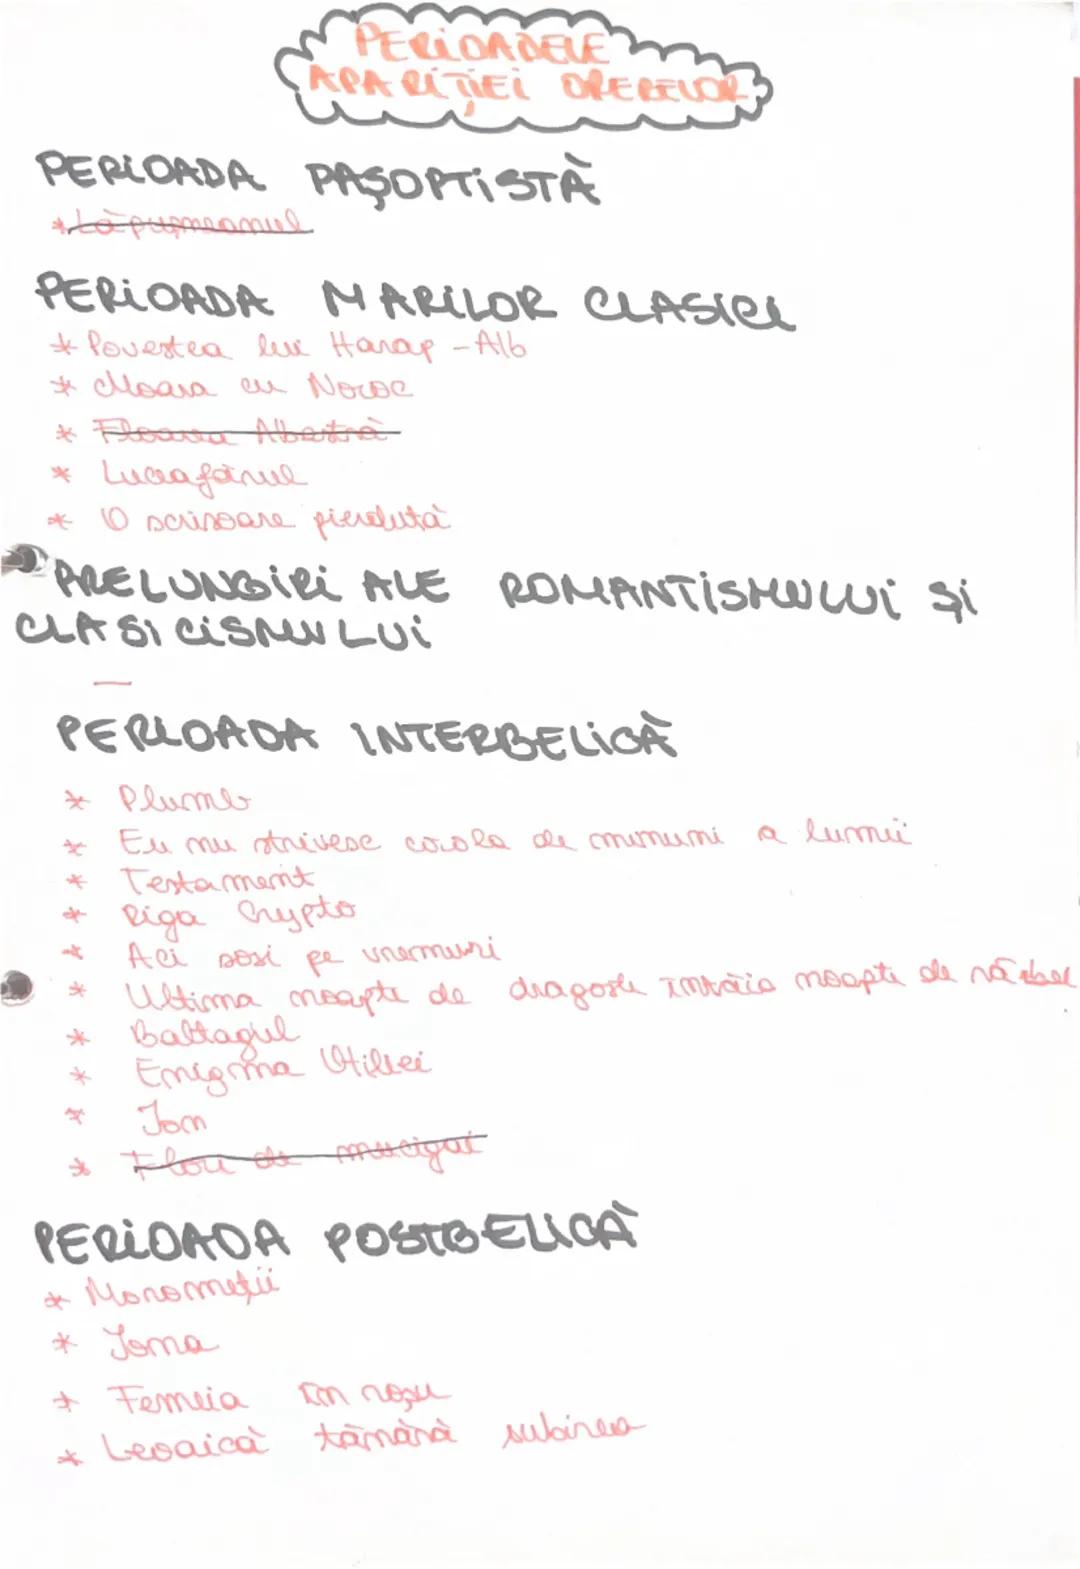 PERIOADELE
APARIȚIEI OPERELOR
PERIOADA PAȘOPTISTĂ
* Lăpușneanul
PERIOADA MARILOR CLASICI
* Povestea lui Harap-Alb
* Moara cu Noroc
* Floarea Albastră
* Luceafărul
* O scrisoare pierdută
PRELUNGIRI ALE ROMANTISMULUI ȘI
CLASICISMULUI
—
PERIOADA INTERBELICĂ
* Plumb
* Eu nu strivesc corola de minuni a lumii
* Testament
* Riga Crypto
* Aci sosi pe vremuri
* Ultima noapte de dragoste întâia noapte de război
* Baltagul
* Enigma Otiliei
* Ion
* Flori de mucigai
PERIOADA POSTBELICĂ
* Moromeții
* Iona
* Femeia în roșu
* Leoaică tânără iubirea